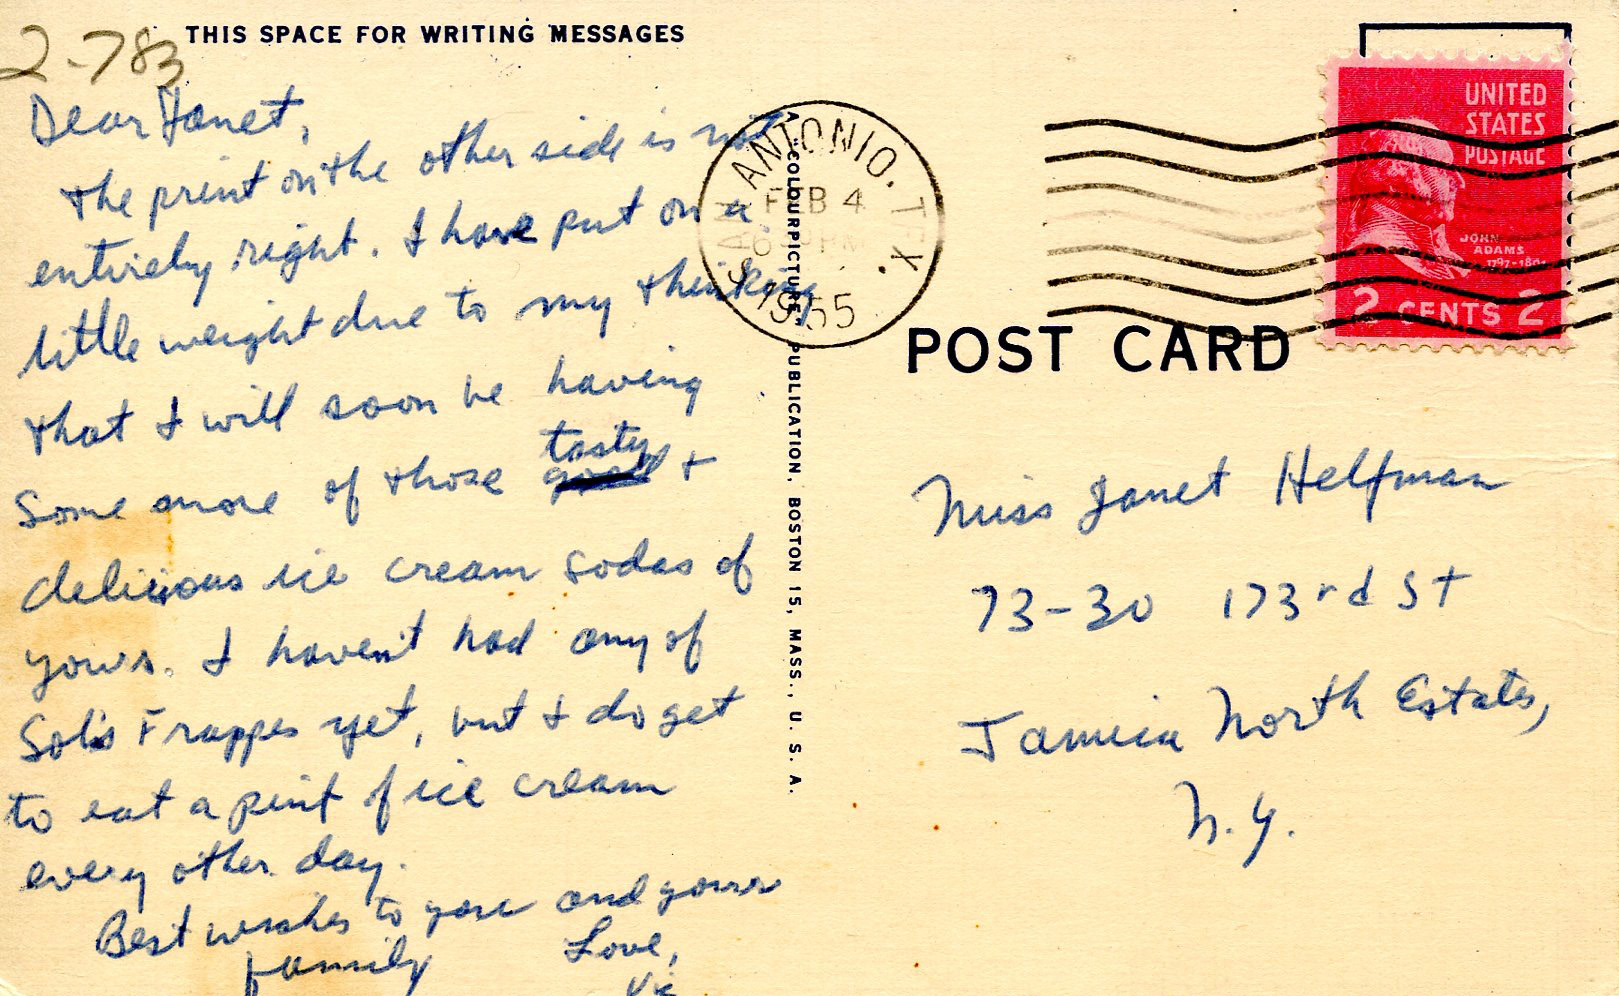 2-783
THIS SPACE FOR WRITING MESSAGES
Dear Janet,
the print on the other side is not
entirely right. I have put on a
little weight due to my thinking
that I will soon be having
tasty
some more of those good +
delicious ice cream sodas of
yours. I haven't had any of
Sol's Frappes yet, but I do get
to eat a pint of ice cream
every other day.
Best wishes to you and yours
family
Love,
Vic
A "COLOURPICTURE" PUBLICATION, BOSTON 15, MASS., U. S. A.
SAN ANTONIO, TEX.
FEB 4
PM
1955
UNITED
STATES
POSTAGE
JOHN
ADAMS
1797-1801
2 CENTS 2
POST CARD
Miss Janet Helfman
73-30 173rd St
Jamica North Estates,
N.Y.